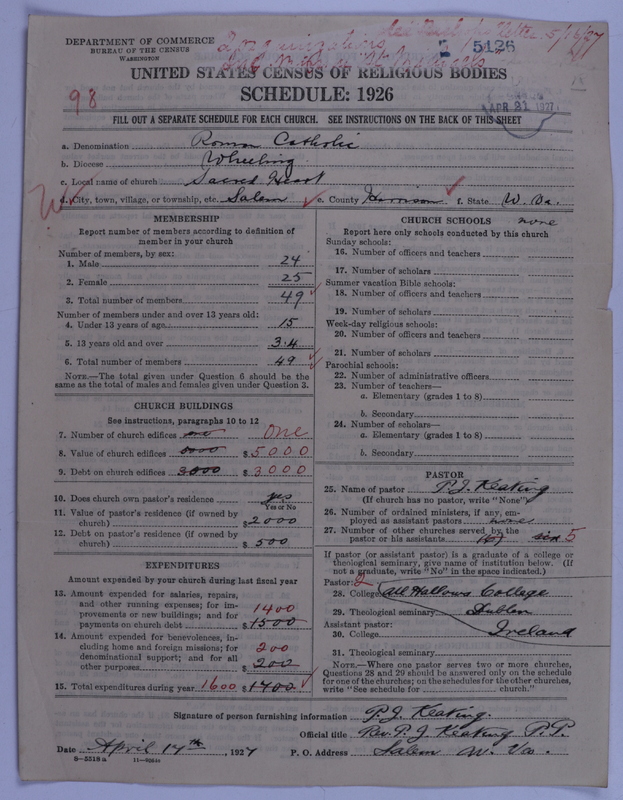 DEPARTMENT OF COMMERCE
BUREAU OF THE CENSUS
WASHINGTON
5/16/27
5426
UNITED STATES CENSUS OF RELIGIOUS BODIES
98
SCHEDULE: 1926
APR 21 1927
FILL OUT A SEPARATE SCHEDULE FOR EACH CHURCH. SEE INSTRUCTIONS ON THE BACK OF THIS SHEET
a. Denomination Roman Catholic
b. Diocese Wheeling
c. Local name of church Sacred Heart
d. City, town, village, or township, etc. Salem e. County Harrison f. State W. Va.
MEMBERSHIP
Report number of members according to definition of
member in your church
Number of members, by sex:
1. Male 24
2. Female 25
3. Total number of members 49
Number of members under and over 13 years old:
4. Under 13 years of age 15
5. 13 years old and over 34
6. Total number of members 49
NOTE.—The total given under Question 6 should be the
same as the total of males and females given under Question 3.
CHURCH BUILDINGS
See instructions, paragraphs 10 to 12
7. Number of church edifices no one
8. Value of church edifices 0000 $5000
9. Debt on church edifices 3000 $3000
10. Does church own pastor's residence yes
Yes or No
11. Value of pastor's residence (if owned by
church) $2000
12. Debt on pastor's residence (if owned by
church) $500
EXPENDITURES
Amount expended by your church during last fiscal year
13. Amount expended for salaries, repairs,
and other running expenses; for im-
provements or new buildings; and for
payments on church debt 1400 $1500
14. Amount expended for benevolences, in-
cluding home and foreign missions; for
denominational support; and for all
other purposes 200 $200
15. Total expenditures during year 1600 $1700
CHURCH SCHOOLS none
Report here only schools conducted by this church
Sunday schools:
16. Number of officers and teachers
17. Number of scholars
Summer vacation Bible schools:
18. Number of officers and teachers
19. Number of scholars
Week-day religious schools:
20. Number of officers and teachers
21. Number of scholars
Parochial schools:
22. Number of administrative officers
23. Number of teachers—
a. Elementary (grades 1 to 8)
b. Secondary
24. Number of scholars—
a. Elementary (grades 1 to 8)
b. Secondary
PASTOR
25. Name of pastor P. J. Keating
(If church has no pastor, write "None")
26. Number of ordained ministers, if any, em-
ployed as assistant pastors none
27. Number of other churches served by the
pastor or his assistants six 5
If pastor (or assistant pastor) is a graduate of a college or
theological seminary, give name of institution below. (If
not a graduate, write "No" in the space indicated.)
Pastor: 2
28. College All Hallows College
29. Theological seminary Dublin
Assistant pastor:
30. College Ireland
31. Theological seminary
NOTE.—Where one pastor serves two or more churches,
Questions 28 and 29 should be answered only on the schedule
for one of the churches; on the schedules for the other churches,
write "See schedule for church."
Signature of person furnishing information P. J. Keating.
Official title Rev. P. J. Keating P. P.
Date April 14th, 1927 P. O. Address Salem W. Va.
8—5518a 11—90644